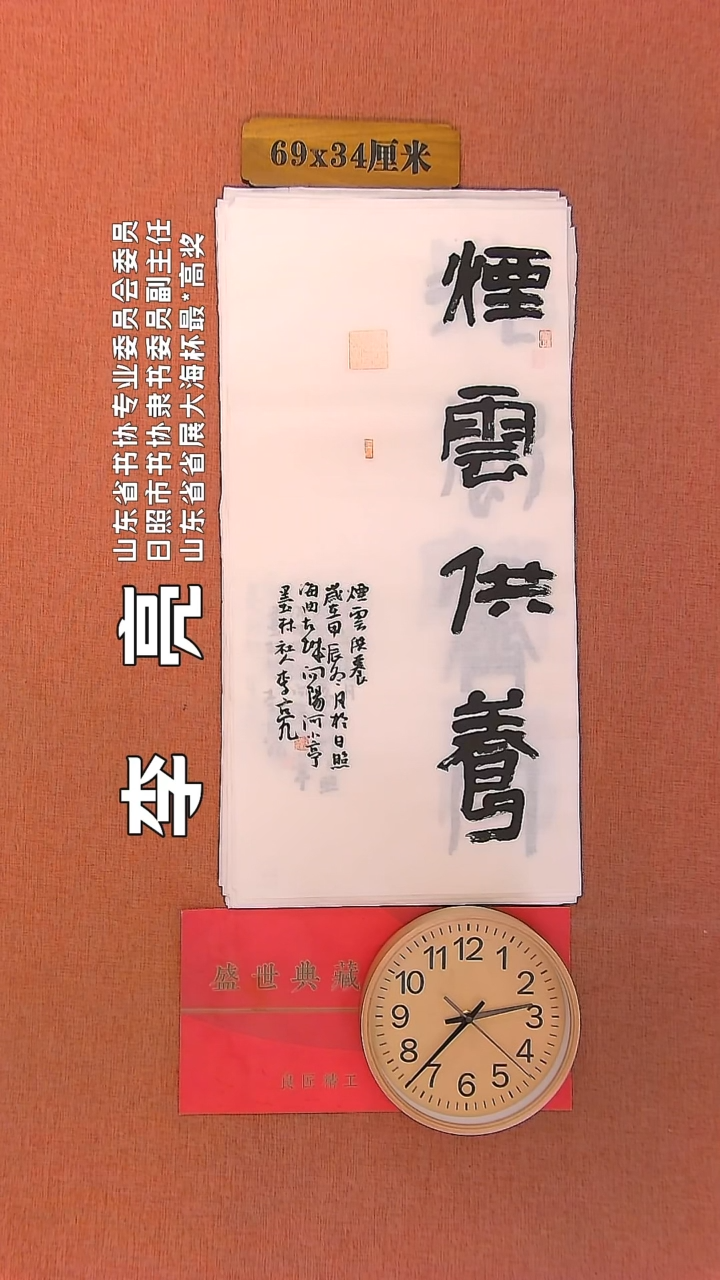 69x34厘米
山东省书协专业委员会委员
日照市书协隶书委员副主任
山东省省展大海杯最*高奖
李亮
煙雲供養
煙雲供養
歲在甲辰冬月於日照
海曲古城向陽河小亭
墨林社人李亮
盛世典藏
良匠精工
12
1
2
3
4
5
6
7
8
9
10
11